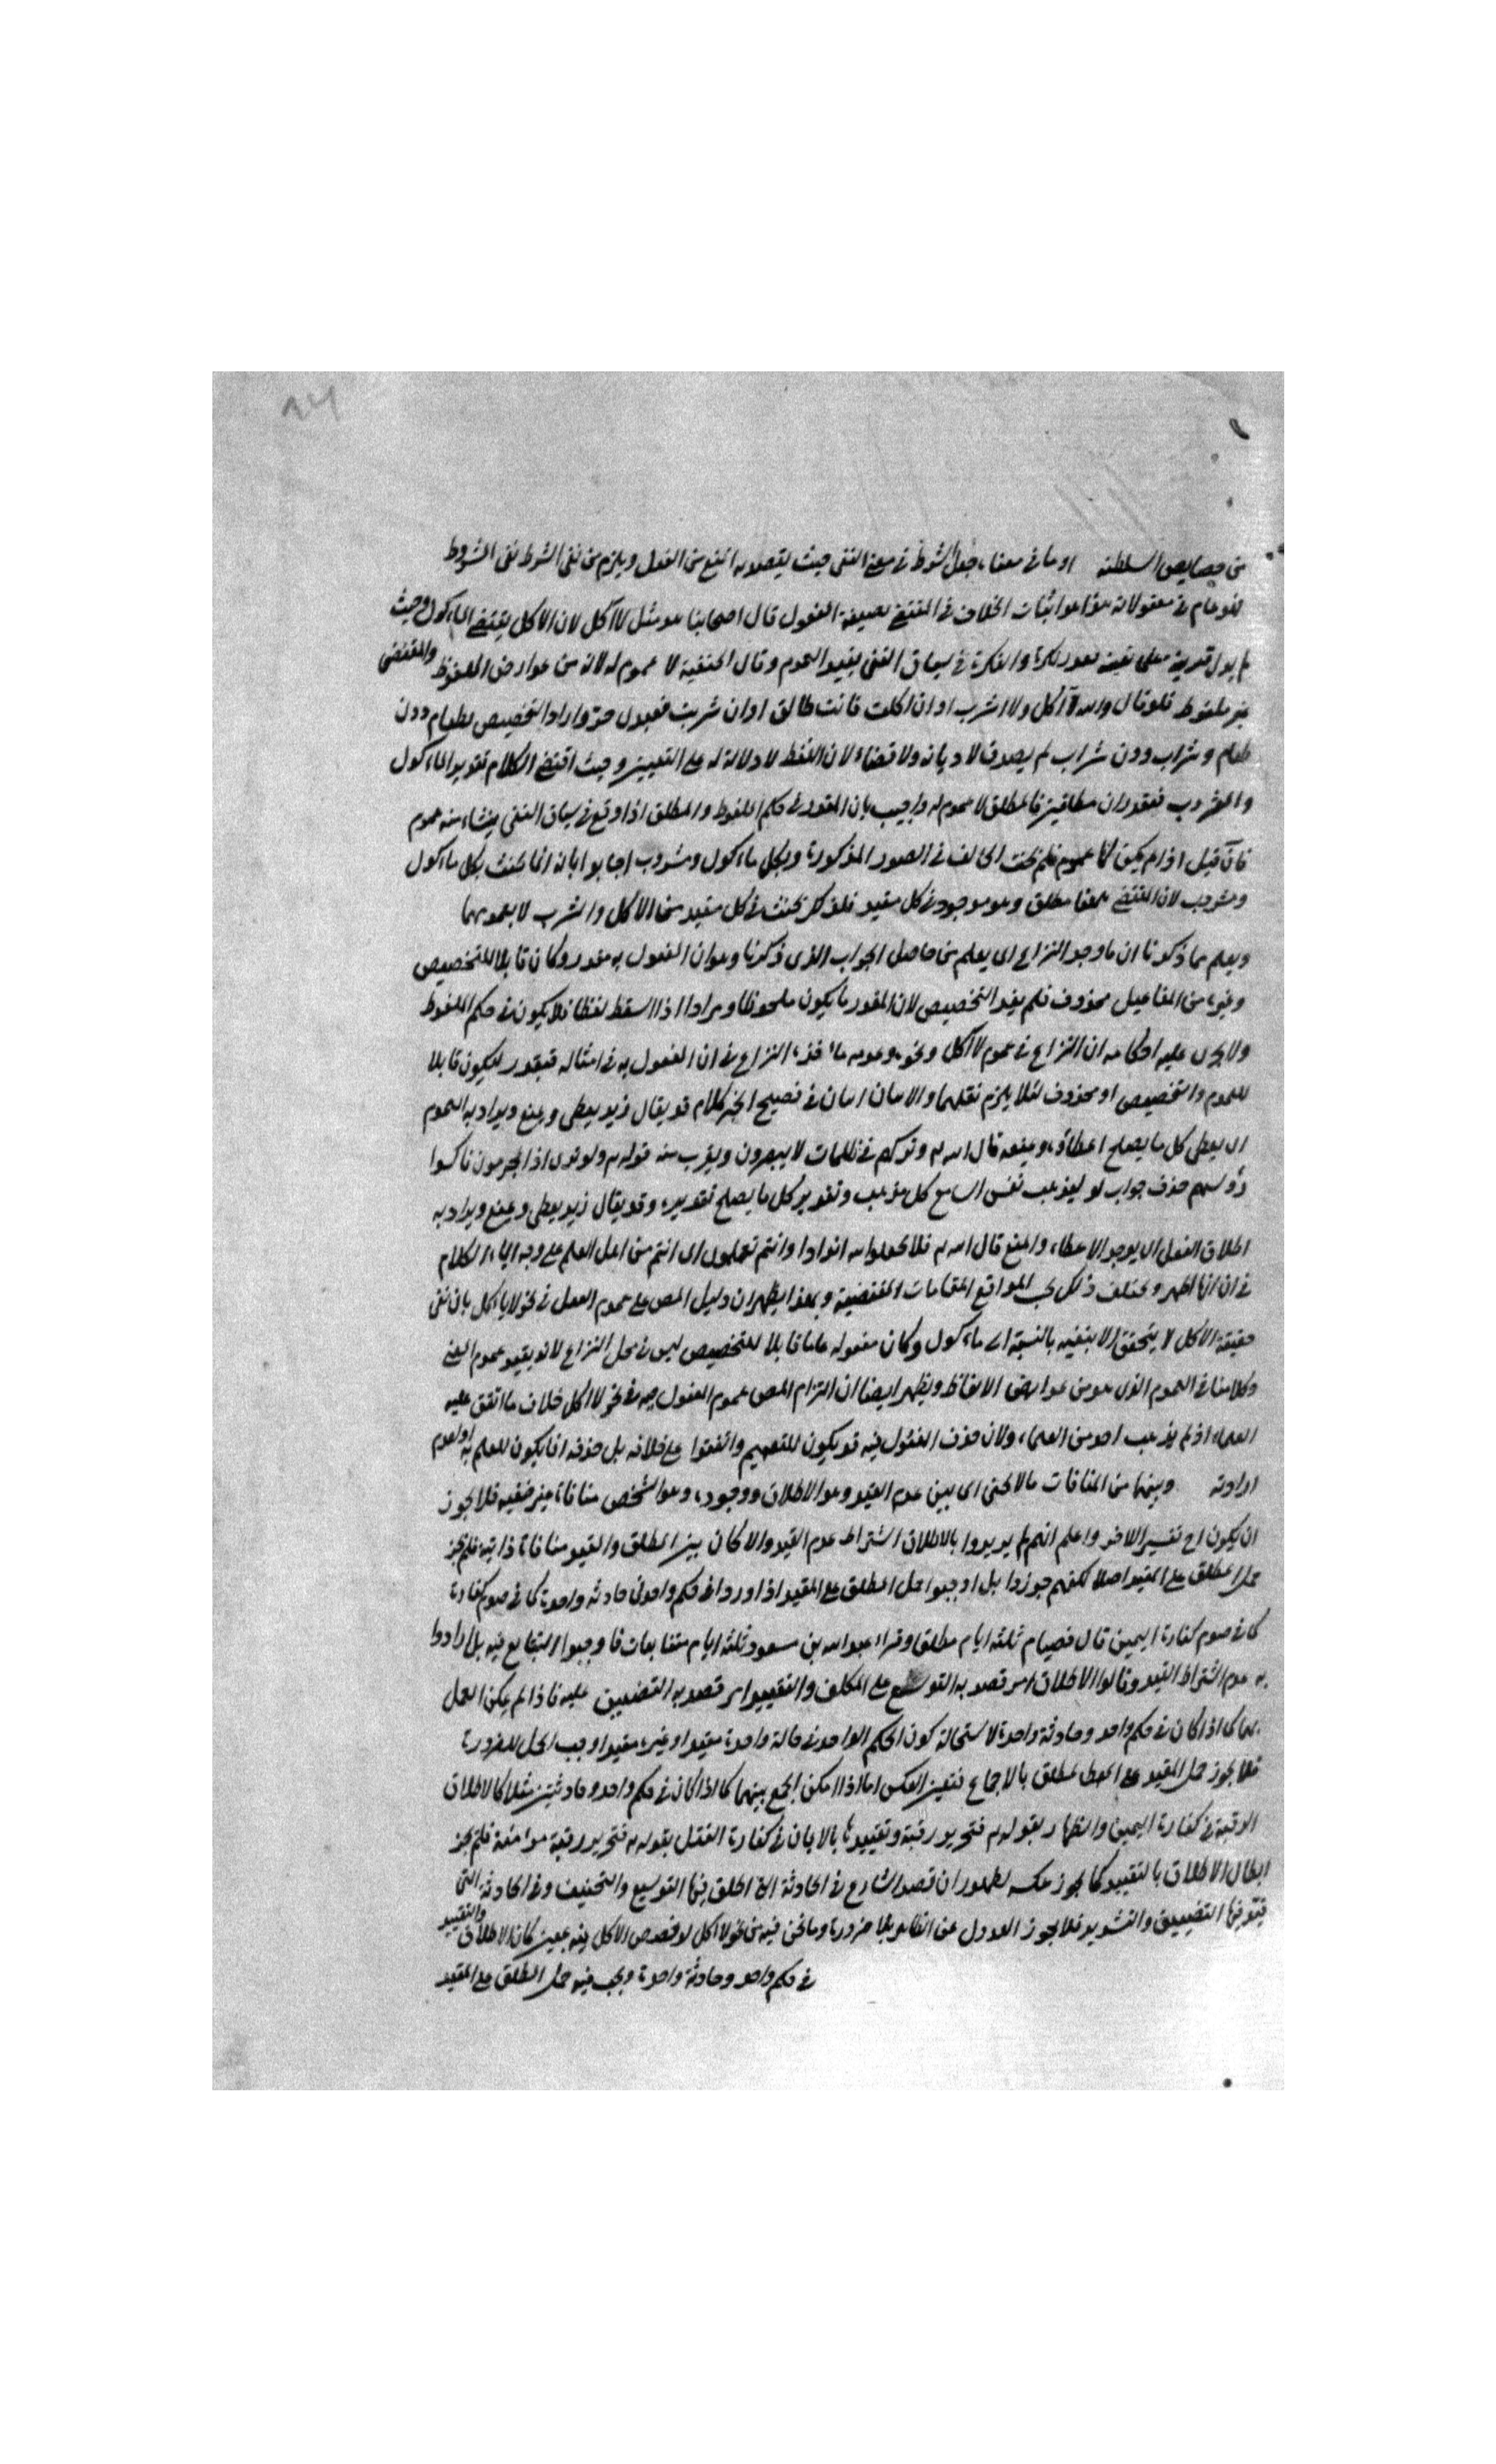 من خصايص السلطنة او ما فى معناه جعل الشرط فى معنى النفى حيث يقصد به المنع من الفعل ويلزم من نفى الشرط نفى المشروط
فهو عام فى مفعولاته هذا هو اثبات الخلاف فى المقتضى بصيغة المفعول قال اصحابنا هو مثل لا آكل لان الاكل يقتضى الماكول وحيث
لم يدل قرينة على تعينه تعدد نكرة والنكرة فى سياق النفى يفيد العموم وقال الحنفية لا عموم له لانه من عوارض الملفوظ والمقتضى
غير ملفوظ فلو قال والله لا آكل ولا اشرب او ان اكلت فانت طالق او ان شربت فعبدى حر واراد التخصيص بطعام دون
طعام وشراب دون شراب لم يصدق لا ديانة ولا قضاء لان اللفظ لا دلالة له على التعيين وحيث اقتضى الكلام تقدير الماكول
والمشروب فمقدران مطلقين فالمطلق لا عموم له واجيب بان المقدر فى حكم الملفوظ والمطلق اذا وقع فى سياق النفى ينشاء منه عموم
فان قيل اذا لم يكن لها عموم فلم يحنث الحالف فى الصور المذكورة وبكل ماكول ومشروب اجابوا بانه انما يحنث بكل ماكول
ومشروب لان المقتضى مطلق وهو موجود فى كل مقيد فلذلك يحنث فى كل مقيد من الاكل والشرب لا بعمومهما
ويعلم مما ذكرنا ان ما وجه النزاع اى يعلم من حاصل الجواب الذى ذكرنا وهو ان المفعول به مقدر وكان قابلا للتخصيص
وغيره من المفاعيل محذوف فلم يفد التخصيص لان المقدر ما يكون ملحوظا ومرادا اذا اسقط لفظا فلا يكون فى حكم الملفوظ
ولا يجرى عليه احكامه ان النزاع فى عموم لا آكل ونحوه وعدمه ماخذه النزاع فى ان المفعول به فى امثاله مقدر ليكون قابلا
للعموم والتخصيص او محذوف لئلا يلزم نقلهما والامران فى فصيح الكلام قد يقال زيد يعطى ويمنع ويراد به العموم
اى يعطى كل ما يصلح اعطاؤه ويمنعه قال الله تع وتركهم فى ظلمات لا يبصرون ويقرب منه قوله تع ولو ترى اذ المجرمون ناكسوا
رؤسهم حذف جواب لو ليذهب نفس السامع كل مذهب وتقدير كل ما يصلح تقديره وقد يقال زيد يعطى ويمنع ويراد به
اطلاق الفعل اى يوجد الاعطاء والمنع قال الله تع فلا تجعلوا لله اندادا وانتم تعلمون اى انتم من اهل العلم على وجه الكلام
فى ان ايها اظهر ويختلف ذلك بحسب المواقع المقامات المقتضية وبهذا يظهر ان دليل المص على عموم الفعل فى نحو لا ياكل بان نفى
حقيقة الاكل لا يتحقق الا بنفيه بالنسبة الى ماكول وكان مفعوله عاما قابلا للتخصيص ليس فى محل النزاع لانه يفيد عموم المعنى
وكلامنا فى العموم الذى هو من عوارض الالفاظ ويظهر ايضا ان التزام المص عموم المفعول فيه فى نحو لا اكل خلاف ما اتفق عليه
العلماء اذ لم يذهب احد من العلماء ولان حذف المفعول فيه قد يكون للتعميم واتفقوا على خلافه بل حذفه انما يكون للعلم به او لعدم
ارادته وبينهما من المنافات ما لا يخفى اى بين عدم القيد وهو الاطلاق ووجوده وهو الشخص منافاة بين ضفيه فلا يجوز
ان يكون احد تفسير الاخر واعلم انهم لم يريدوا بالاطلاق اشتراط عدم القيد والا كان بين المطلق والمقيد منافاة ذاتية فلم يجز
حمل المطلق على المقيد اصلا لكنهم جوزوا بل اوجبوا حمل المطلق على المقيد اذا وردا فى حكم واحد فى حادثة واحدة كما فى صوم كفارة
كما فى صوم كفارة اليمين قال فصيام ثلثة ايام مطلق وقراء عبد الله بن مسعود ثلثة ايام متتابعات فاوجبوا التتابع فيه بل ارادوا
به عدم اشتراط القيد وقالوا الاطلاق امر قصد به التوسع على المكلف والتقييد امر قصد به التضييق عليه فاذا لم يمكن العمل
بهما كما اذا كان فى حكم واحد وحادثة واحدة لاستحالة كون الحكم الواحد فى حالة واحدة مقيدا وغير مقيد اوجب الحمل للضرورة
فلا يجوز حمل المقيد على المطلق بالاجماع فتعين العكس اما اذا امكن الجمع بينهما كما اذا كان فى حكم واحد وحادثتين مثلا كالاطلاق
الرقبة فى كفارة اليمين والظهار بقوله تع فتحرير رقبة وتقييدها بالايمان فى كفارة القتل بقوله تع فتحرير رقبة مؤمنة فلم يجز
ابطال الاطلاق بالتقييد كما لم يجوز عكسه لظهور ان قصد الشارع فى الحادثة التى اطلق فيها التوسيع والتخفيف وفى الحادثة التى
قيد فيها التضييق والتشديد فلا يجوز العدول عن الظاهر بلا ضرورة وما نحن فيه من نحو لا اكل لو خصص الاكل فيه بمعين كان الاطلاق والتقييد
فى حكم واحد وحادثة واحدة ويجب فيه حمل المطلق على المقيد